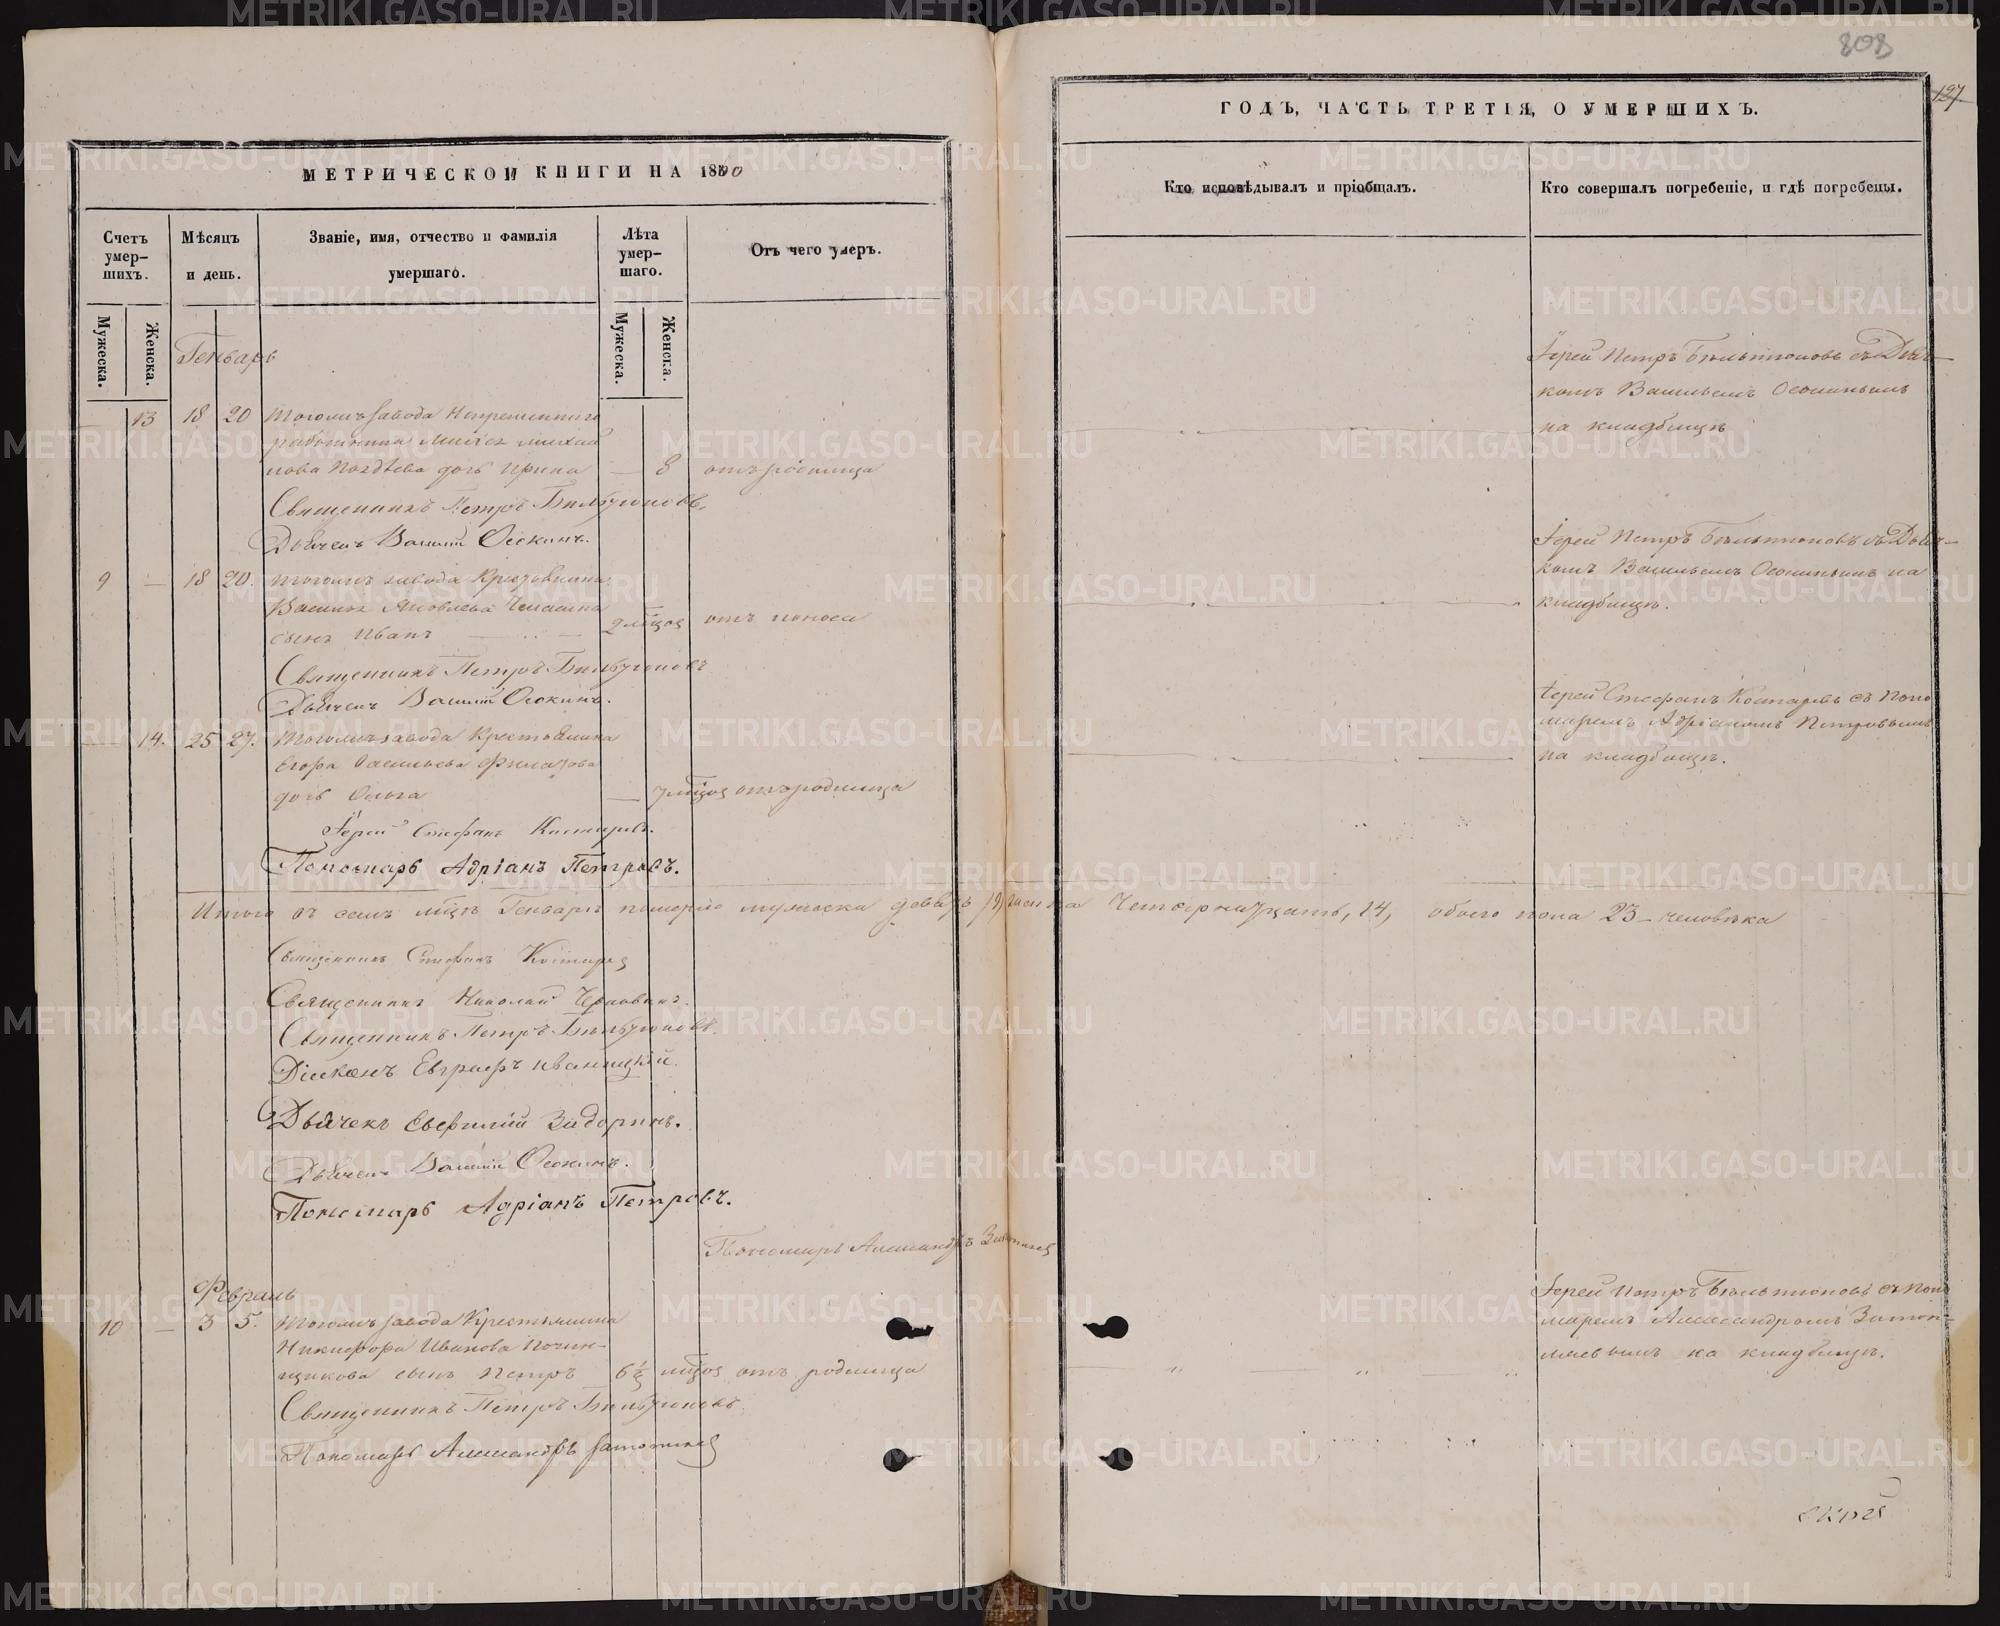 808
127
МЕТРИЧЕСКОЙ КНИГИ НА 1860
ГОДЪ, ЧАСТЬ ТРЕТІЯ, О УМЕРШИХЪ.
Счетъ умер-
шихъ.
Мѣсяцъ
и день.
Званіе, имя, отчество и фамилія
умершаго.
Лѣта
умер-
шаго.
Отъ чего умеръ.
Кто исповѣдывалъ и пріобщалъ.
Кто совершалъ погребеніе, и гдѣ погребены.
Мужеска.
Женска.
Мужеска.
Женска.
Генварь
13 18 20 Тогоже завода Непременнаго
работника
дочь Ирина — 8 отъ родимца
Іерей Петръ Бѣльтюковъ съ Дьяч-
комъ Васильемъ Осокинымъ
на кладбищѣ
Священникъ Петръ Бѣльтюковъ.
Дьячекъ Василій Осокинъ.
9 — 18 20. Тогоже завода Крестьянина
Василья Яковлева
сынъ Иванъ 2 мѣсяц отъ поноса
Іерей Петръ Бѣльтюковъ съ Дьяч-
комъ Васильемъ Осокинымъ на
кладбищѣ.
Священникъ Петръ Бѣльтюковъ
Дьячекъ Василій Осокинъ.
14. 25 27. Тогоже завода Крестьянина
Егора Васильева Филатова
дочь Ольга — 7 мѣсяц отъ родимца
Іерей Стефанъ Костаревъ съ Поно
маремъ Адріаномъ Петровымъ
на кладбищѣ.
Іерей Стефанъ Костаревъ.
Пономарь Адріанъ Петровъ.
Итого въ семъ мѣсяцѣ Генварѣ померло мужеска девять, 9, женска Четырнадцать, 14, обоего пола 23 человѣка
Священникъ Стефанъ Костаревъ
Священникъ Николай
Священникъ Петръ Бѣльтюковъ.
Діаконъ Евграфъ Иваницкій.
Дьячекъ Задоринъ.
Дьячекъ Василій Осокинъ.
Пономарь Адріанъ Петровъ.
Пономарь Александръ
Февраль
10 — 3 5. Тогоже завода Крестьянина
Никифора Иванова Почин-
щикова сынъ Петръ 6½ мѣсяц отъ родимца
Іерей Петръ Бѣльтюковъ съ Поно
маремъ Александромъ
на кладбищѣ.
Священникъ Петръ Бѣльтюковъ.
Пономарь Александръ
METRIKI.GASO-URAL.RU